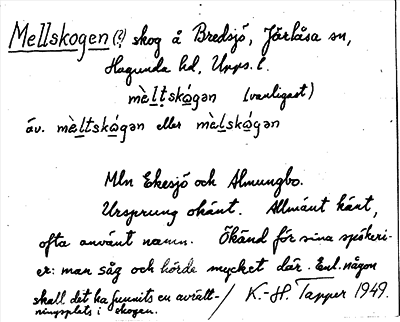 Mellskogen (?) skog å Bredsjö, Järlåsa sn,
Hagunda hd, Upps. l.
mèl̲t̲skó̲gən (vanligast)
äv. mèl̲t̲skó̲gən eller mèl̲skó̲gən
Mln Ekesjö och Almungbo.
Ursprung okänt. Allmänt känt,
ofta använt namn. Ökänd för sina spökeri-
er: man såg och hörde mycket där. Enl. någon
skall det ha funnits en avrätt-
ningsplats i skogen. / K.-H. Tapper 1949.